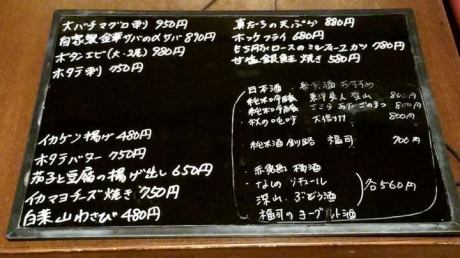 大バチマグロ刺 950円
自家製金華サバの〆サバ 890円
ボタンエビ(大・3尾) 980円
ホタテ刺 750円
イカゲソ揚げ 480円
ホタテバター 750円
茄子と豆腐の揚げ出し 650円
イカマヨチーズ焼き 750円
白菜山わさび 480円
真だちの天ぷら 880円
ホッケフライ 680円
もち豚ロースのミルフィーユカツ 780円
甘塩銀鮭焼き 580円
日本酒 おすすめ
純米吟醸 800円
純米吟醸 800円
秋の 大信州 800円
純米酒 釧路 福司 700円
梅酒
深山 ぶどう酒
福司のヨーグルト酒
各560円